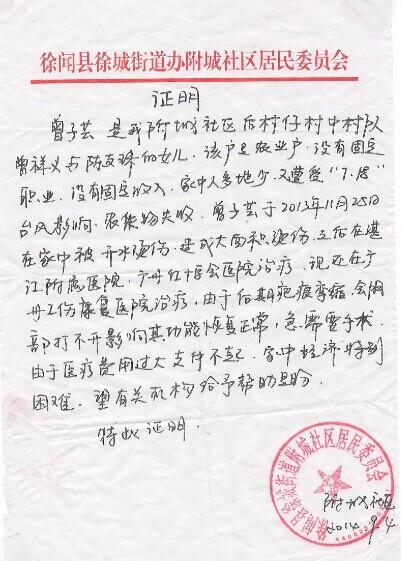 徐闻县徐城街道办附城社区居民委员会
证明
曾子芸 是我附城社区后村仔村中村队
曾祥义与陈 的女儿. 该户是农业户,没有固定
职业. 没有固定收入. 家中人多地少. 又遭受"7.18"
台风影响. 农作物失收. 曾子芸于2013年11月25日
在家中被开水烫伤. 造成大面积烫伤. 立后在湛
江附属医院,广州红十字会医院治疗. 现还在广
州工伤康复医院治疗,由于后期疤痕挛缩,会阴
部打不开影响其功能恢复正常,急需要手术.
由于医疗费用过大支付不起. 家中经济特别
困难. 望有关机构给予帮助是盼.
特此证明.
附城社区
2014.9.4
徐闻县徐城街道附城社区居民委员会